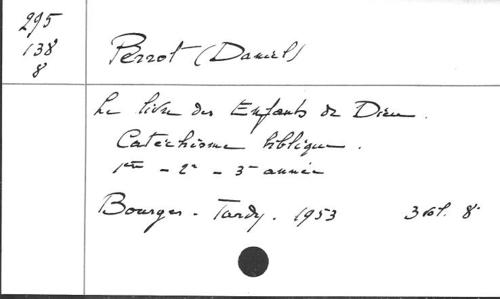 295
138
8
Perrot (Daniel)
Le livre des Enfants de Dieu.
Catéchisme biblique.
1ère - 2e - 3e année
Bourges - Tardy. 1953 3 vol. 8°